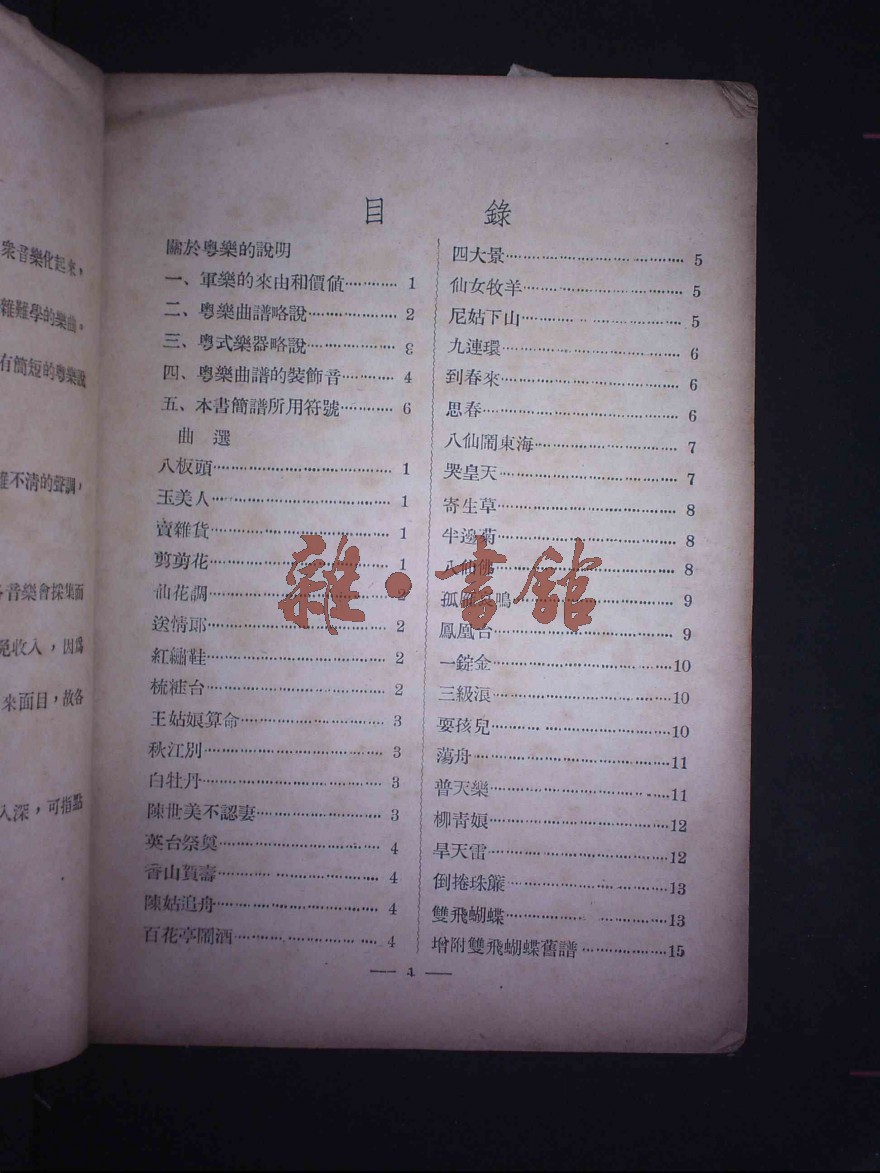 衆音樂化起來，
雜難學的樂曲。
有簡短的粤樂說
雜不清的聲調，
各音樂會採集而
收入，因爲
來面目，故各
入深，可指點
目 錄
關於粤樂的說明
一、軍樂的來由和價値………… 1
二、粤樂曲譜略說……………… 2
三、粤式樂器略說……………… 3
四、粤樂曲譜的裝飾音………… 4
五、本書簡譜所用符號………… 6
曲 選
八板頭………………………… 1
玉美人………………………… 1
賣雜貨………………………… 1
剪剪花………………………… 1
仙花調………………………… 2
送情郎………………………… 2
紅繡鞋………………………… 2
梳粧台………………………… 2
王姑娘算命…………………… 3
秋江別………………………… 3
白牡丹………………………… 3
陳世美不認妻………………… 3
英台祭奠……………………… 4
香山賀壽……………………… 4
陳姑追舟……………………… 4
百花亭鬧酒…………………… 4
四大景………………………… 5
仙女牧羊……………………… 5
尼姑下山……………………… 5
九連環………………………… 6
到春來………………………… 6
思春…………………………… 6
八仙鬧東海…………………… 7
哭皇天………………………… 7
寄生草………………………… 8
半邊菊………………………… 8
八仙佛………………………… 8
孤雁哀鳴……………………… 9
鳳凰台………………………… 9
一錠金…………………………10
三級浪…………………………10
耍孩兒…………………………10
蕩舟……………………………11
普天樂…………………………11
柳青娘…………………………12
旱天雷…………………………12
倒捲珠簾………………………13
雙飛蝴蝶………………………13
增附雙飛蝴蝶舊譜……………15
— 1 —
雜·書館